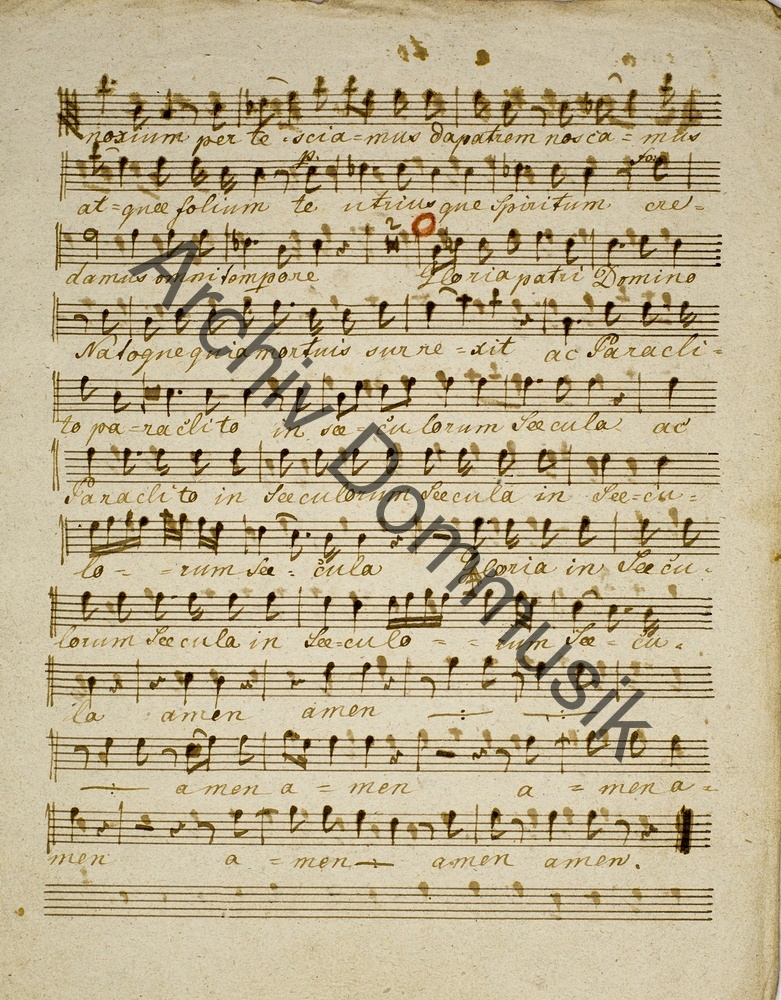 noxium per te scia=mus da patrem nosca=mus
p: for:
at=quee folium te utriusque Spiritum cre=
2
damus omni tempore Gloria patri Domino
Natoque quia mortuis surre=xit ac Paracli=
to pa=raclito in sæ=culorum Sæcula ac
Paraclito in Sæculorum Sæcula in Sæ=cu=
lo= =rum Sæ=cula Gloria in Sæcu=
lorum Sæcula in Sæ=culo= =rum Sæ=cu=
la amen amen
amen a=men a=men a=
men a=men amen amen.
Archiv Dommusik